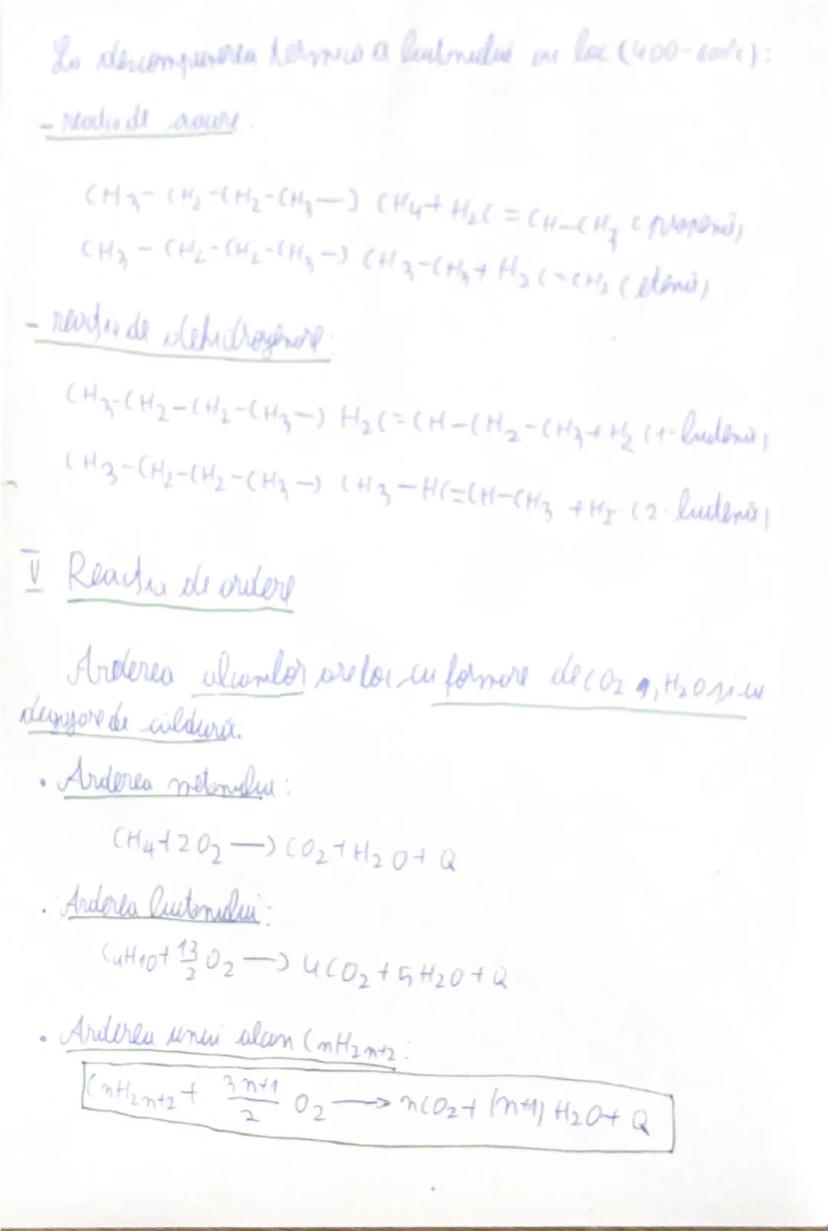 La descompunerea termica a butanului au loc (400-600°C):
- reactia de
CH3-CH2-CH2-CH3→ CH4+H2C=CH-CH3 (propena)
CH3-CH2-CH2-CH3→ CH3-CH3+H2C=CH2 (etena)
- reactia de dehidrogenare:
CH3-CH2-CH2-CH3→ H2C=CH-CH2-CH3+H2 (1-butena)
CH3-CH2-CH2-CH3→ CH3-HC=CH-CH3+H2 (2-butena)
V Reactia de ardere
Arderea alcanilor are loc cu formare de CO2, H2O și cu
degajare de căldură.
• Arderea metanului:
CH4+2O2→CO2+H2O+Q
• Arderea butanului:
C4H10+13/2 O2→4CO2+5H2O+Q
• Arderea unui alcan CnH2n+2:
CnH2n+2+ 3n+1/2 O2→nCO2+(n+1)H2O+Q